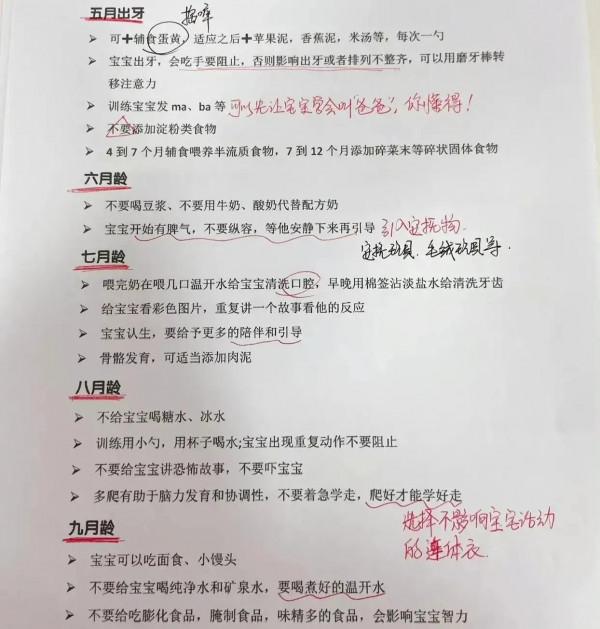 五月出牙
➤ 可+辅食蛋黄，适应之后+苹果泥，香蕉泥，米汤等，每次一勺
➤ 宝宝出牙，会吃手要阻止，否则影响出牙或者排列不整齐，可以用磨牙棒转
移注意力
➤ 训练宝宝发 ma、ba 等 可以先让宝宝学会叫"爸爸"，你懂得！
➤ 不要添加淀粉类食物
➤ 4 到 7 个月辅食喂养半流质食物，7 到 12 个月添加碎菜末等碎状固体食物
六月龄
➤ 不要喝豆浆、不要用牛奶、酸奶代替配方奶
➤ 宝宝开始有脾气，不要纵容，等他安静下来再引导 引入安抚物.
安抚玩具、毛绒玩具等.
七月龄
➤ 喂完奶在喂几口温开水给宝宝清洗口腔，早晚用棉签沾淡盐水给清洗牙齿
➤ 给宝宝看彩色图片，重复讲一个故事看他的反应
➤ 宝宝认生，要给予更多的陪伴和引导
➤ 骨骼发育，可适当添加肉泥
八月龄
➤ 不给宝宝喝糖水、冰水
➤ 训练用小勺，用杯子喝水;宝宝出现重复动作不要阻止
➤ 不要给宝宝讲恐怖故事，不要吓宝宝
➤ 多爬有助于脑力发育和协调性，不要着急学走，爬好才能学好走
选择不影响宝宝活动
的连体衣.
九月龄
➤ 宝宝可以吃面食、小馒头
➤ 不要给宝宝喝纯净水和矿泉水，要喝煮好的温开水
➤ 不要给吃膨化食品，腌制食品，味精多的食品，会影响宝宝智力